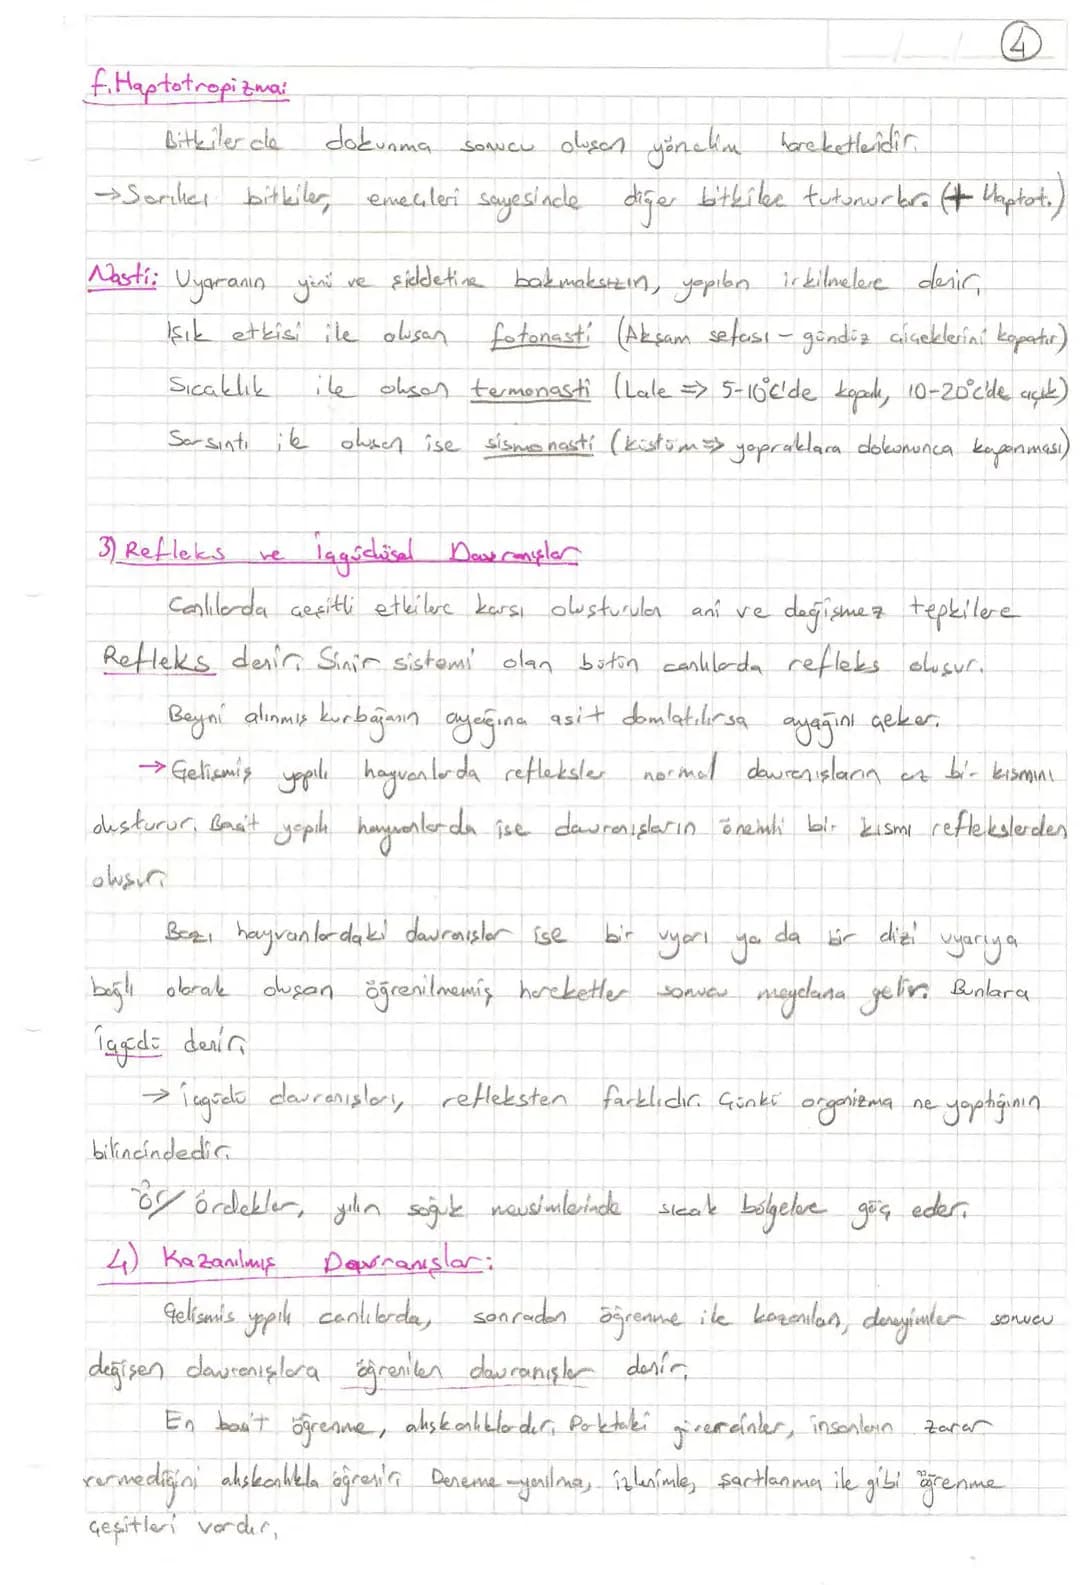 4
f. Haptotropizma:
Bitkilerde dokunma sonucu oluşan yönelim hareketleridir.
→ Sarılıcı bitkiler, emeçleri sayesinde diğer bitkilere tutunurlar. (+ Haptot.)
Nasti: Uyaranın yönü ve şiddetine bakmaksızın, yapılan irkilmelere denir.
Işık etkisi ile oluşan fotonasti (Akşam sefası - gündüz çiçeklerini kapatır)
Sıcaklık ile oluşan termonasti (Lale => 5-10°C'de kapalı, 10-20°C'de açık)
Sarsıntı ile oluşan ise sismonasti (küstüm => yapraklara dokununca kapanması)
3) Refleks ve İçgüdüsel Davranışlar
Canlılarda çeşitli etkilere karşı oluşturulan ani ve değişmez tepkilere
Refleks denir. Sinir sistemi olan bütün canlılarda refleks oluşur.
Beyni alınmış kurbağanın ayağına asit damlatılırsa ayağını çeker.
→ Gelişmiş yapılı hayvanlarda refleksler normal davranışların az bir kısmını
oluşturur. Basit yapılı hayvanlarda ise davranışların önemli bir kısmı reflekslerden
oluşur.
Bazı hayvanlardaki davranışlar ise bir uyarı ya da bir dizi uyarıya
bağlı olarak oluşan öğrenilmemiş hareketler sonucu meydana gelir. Bunlara
İçgüdü denir.
→ içgüdü davranışları, refleksten farklıdır. Çünkü organizma ne yaptığının
bilincindedir.
ör/ ördekler, yılın soğuk mevsimlerinde sıcak bölgelere göç eder.
4) Kazanılmış Davranışlar:
Gelişmiş yapılı canlılarda, sonradan öğrenme ile kazanılan, deneyimler sonucu
değişen davranışlara öğrenilen davranışlar denir.
En basit öğrenme, alışkanlıklardır. Parktaki güvercinler, insanların zarar
vermediğini alışkanlıkla öğrenir. Deneme-yanılma, izlenimle, şartlanma ile gibi öğrenme
çeşitleri vardır.